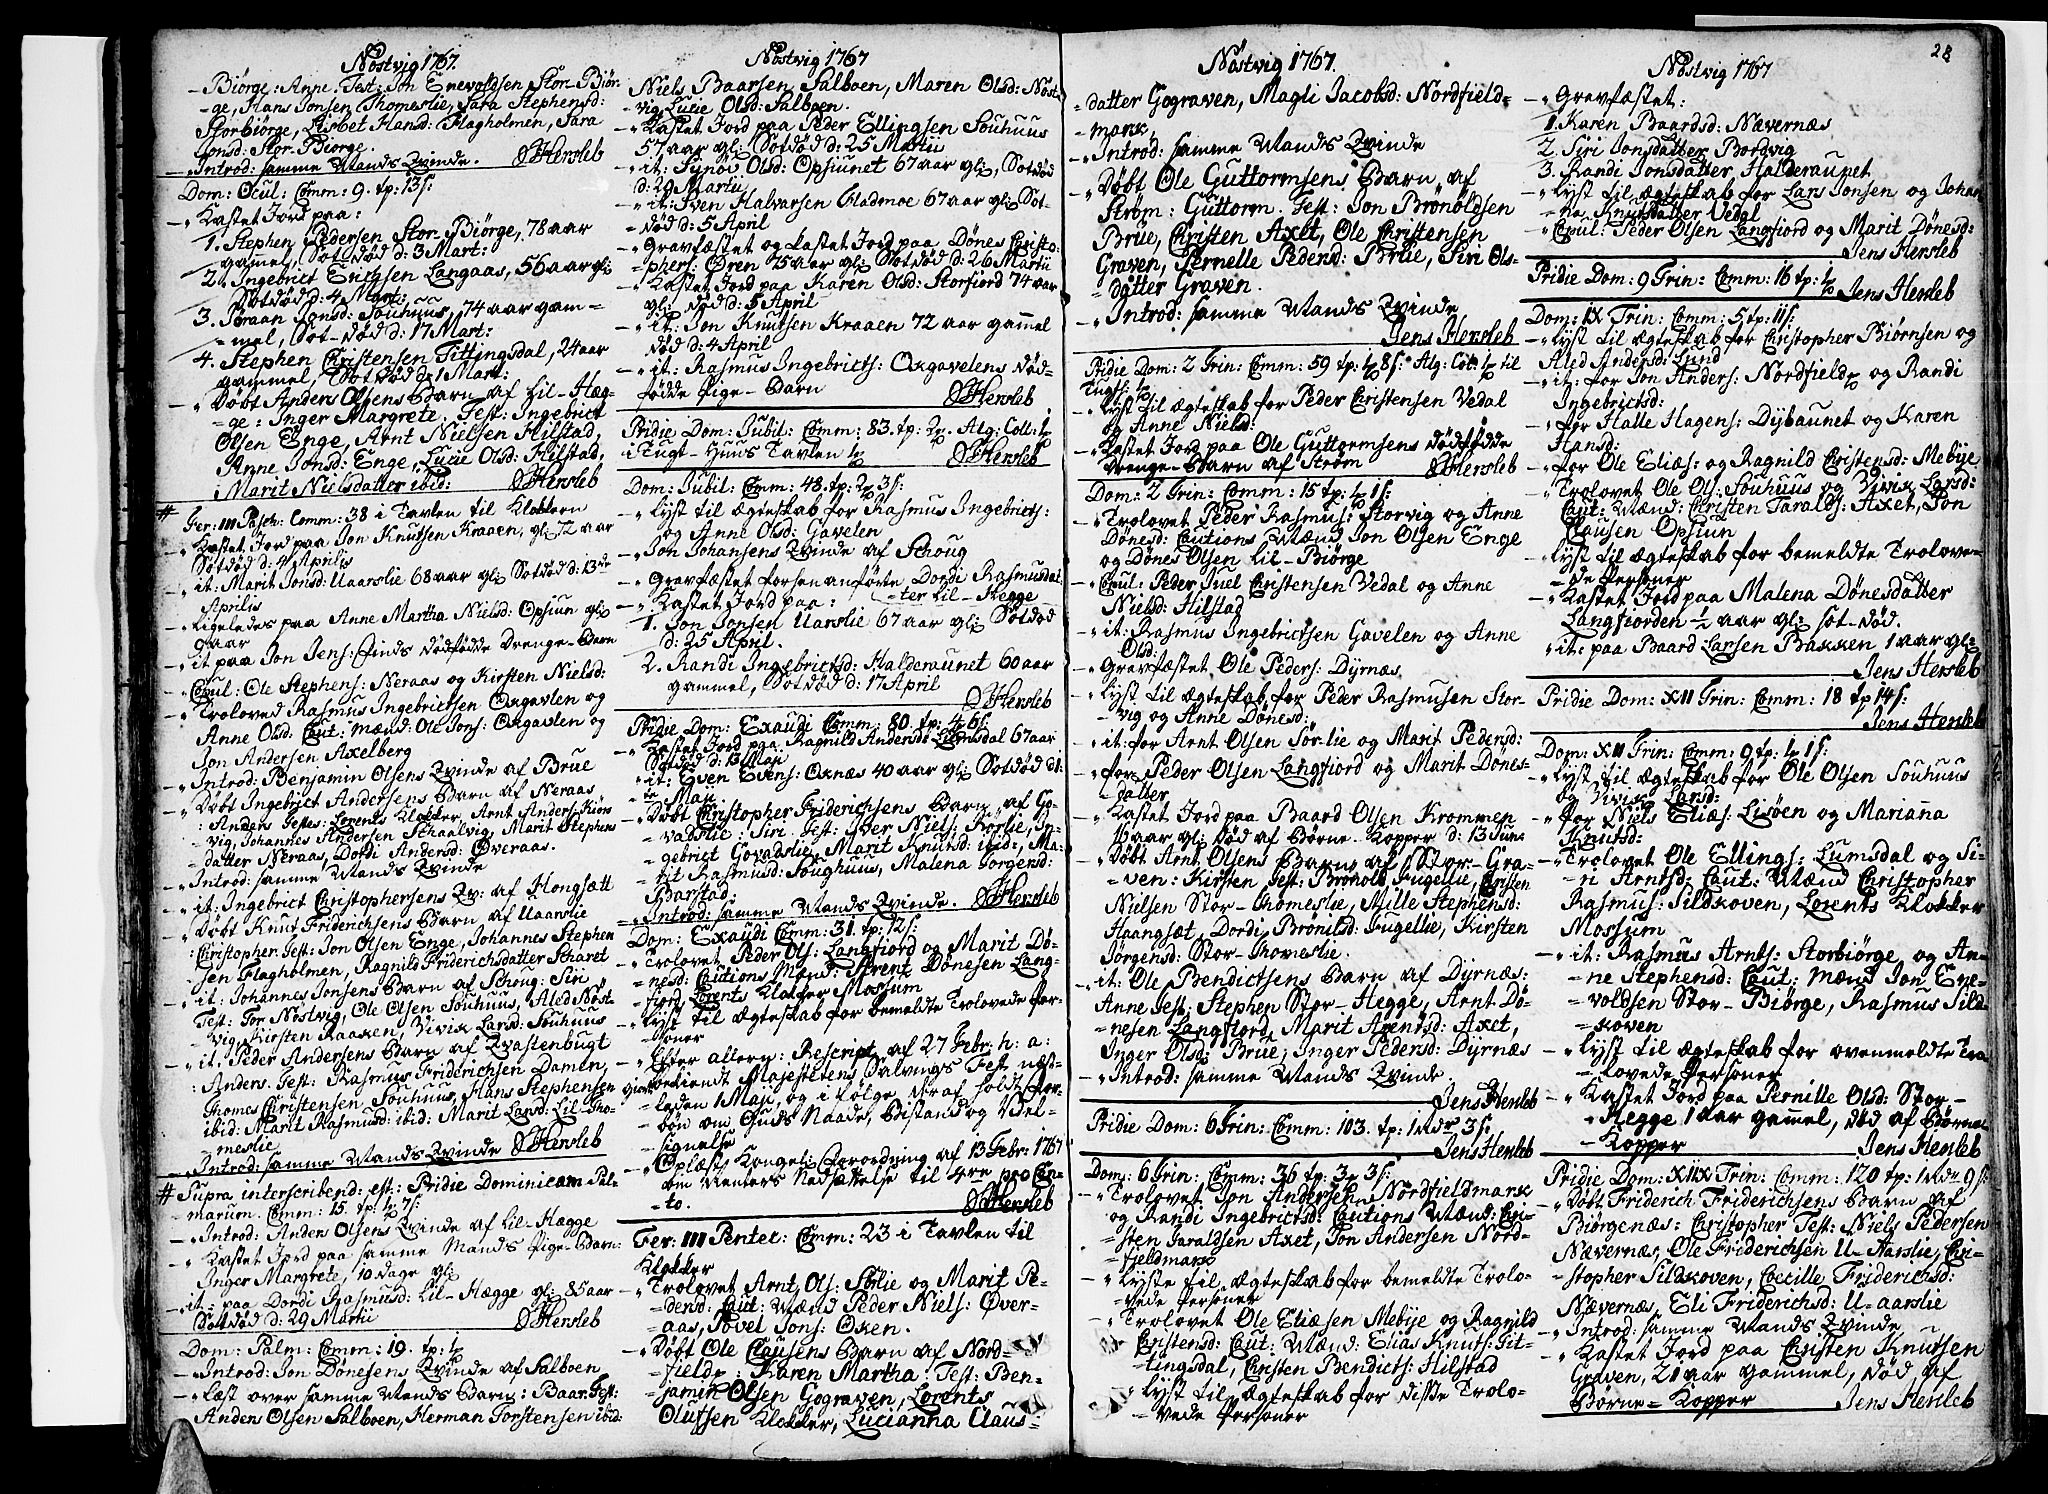 Nøstvig 1767.
-Biørge: Anne. Test: Jon Enevoldsen Stor-Biør-
-ge, Hans Jonsen Thomeslie, Sara Stephensd:
Storbiørge, Lisbet Hansd: Flagholmen, Sara
Jonsd: Stor-Biørge.
-„ Introd: samme Mands Qvinde. Hersleb
Dom: Ocul: Comm: 9. tp: 13 s:
-„ Kastet Jord paa:
1. Stephen Pedersen Stor-Biørge, 78 aar
gammel, Sotdød d: 3 Mart:
2. Ingebrict Erichsen Langaas, 56 aar gl:
Sotdød d: 4 Mart:
3. Jonsd: Souhuus, 74 aar gam-
-mel, Sot-død d: 17 Mart:
4. Stephen Christensen Tittingsdal, 24 aar
gammel, Sotdød d: 1 Mart:
-„ Døbt Anders Olsens Barn af Lil-Hæg-
-ge: Inger Margrete. Test: Ingebrict
Olsen Enge, Arnt Nielsen Hilstad,
Anne Jonsd: Enge, Lucie Olsd: Hilstad,
Marit Nielsdatter ibid: Hersleb
# Fer: III Pasch: Comm: 38 i Tavlen til Klokkern
-„ Kastet Jord paa Jon Knutsen Kraaen, gl: 72 aar
Sotdød d: 4 Aprilis
-„ it: Marit Jonsd: Uaarslie 68 aar gl: Sotdød d: 13de
Aprilis
-„ Ligeledes paa Anne Martha Nielsd: Opsiun gl:
9 aar
-„ it paa Jon Jens: Finds dødfødde Drenge-Barn
-„ Copul: Ole Stephens: Neraas og Kirsten Nielsd:
-„ Troloved Rasmus Ingebrictsen Oxgavlen og
Anne Olsd: Caut: Mænd: Ole Jons: Oxgavlen og
Jon Andersen Axelberg
-„ Introd: Benjamin Olsens Qvinde af Brue
-„ Døbt Ingebrict Andersens Barn af Neraas
: Anders. Testes: Lorents Klokker, Arnt Anders: Kiørs
vig, Johannes Andersen Schaalvig, Marit Stephens
datter Neraas, Dordi Andersd: Øveraas.
-„ Introd: samme Mands Qvinde
-„ it: Ingebrict Christophersens Qv: af Hongsætt
-„ Døbt Knut Friderichsens Barn af Uaarslie
: Christopher. Test: Jon Olsen Enge, Johannes Stephen
sen Flagholmen, Ragnild Friderichsdatter Scharet
-„ it: Johannes Jonsens Barn af Schoug: Siri
Test: Tor Nøstvig, Ole Olsen Souhuus, Aled Nøst-
vig, Kirsten Raaken, Vivik Larsd: Souhuus
-„ it. Peder Andersens Barn af Qvastenbugt
: Anders. Test: Rasmus Friderichsen Damen,
Thomes Christensen, Souhuus, Hans Stephensen
ibid: Marit Rasmusd: ibid: Marit Larsd: Lil-Tho-
meslie
-„ Introd: samme Mands Qvinde Hersleb
# Supra interscribend: est: Pridie Dominicam Pal-
-marum. Comm: 15. tp: 7 s:
-„ Introd: Anders Olsens Qvinde af Lil-Hægge
-„ Kastet Jord paa samme Mands Pige-Barn:
Inger Margrete, 10 dage gl:
-„ it: paa Dordi Rasmusd: Lil-Hægge gl: 85 aar
Sotdød d: 29 Martii Hersleb
Dom: Palm: Comm: 19. tp:
-„ Introd: Jon Dønesens Qvinde af Salboen
-„ Læst over samme Mands Barn: Baar. Test:
Anders Olsen Salboen, Herman Torstensen ibid:
Nøstvig 1767
Niels Baarsen Salboen, Maren Olsd: Nøst-
vig, Lucie Olsd: Salboen.
-„ Kastet Jord paa Peder Ellingsen Souhuus
57 aar gl: Sotdød d: 25 Martii
-„ it: Synøv Olsd: Opsiunet 67 aar gl: Sotdød
d: 29 Martii
-„ it: Sven Halvarsen Gladmoe 67 aar gl: Sot-
død d: 5 April
-„ Gravfæstet og kastet Jord paa Dønes Christo-
-phers: Øren 75 aar gl: Sotdød d: 26 Martii
-„ Kastet Jord paa Karen Olsd: Storfiord 74 aar
gl: død d: 5 April
-„ it: Jon Knutsen Kraaen 72 aar gammel
død d: 4 April
-„ it: Rasmus Ingebricts: Oxgavelens død-
fødde Pige-Barn Hersleb
Pridie Dom: Jubil: Comm: 83. tp: 2. Alg: Coll:
i Tugt-Huus Tavlen Hersleb
Dom: Jubil: Comm: 48. tp: 2 3 s:
-„ Lyst til Ægteskab for Rasmus Ingebricts:
og Anne Olsd: Gavelen
-„ Jon Johansens Qvinde af Schoug
-„ Gravfæstet forhen anførte Dordi Rasmusdat-
-ter Lil-Hegge
-„ Kastet Jord paa:
1. Jon Jonsen Uarslie 67 aar gl: Sotdød
d: 25 April.
2. Randi Ingebrictsd: Halderaunet 60 aar
gammel, Sotdød d: 17 April
Hersleb
Pridie Dom: Exaudi Comm: 80. tp: 4 6 s:
-„ Kastet Jord paa Ragnild Andersd: Lumsdal 67 aar
Sotdød d: 13 Maji
-„ it: Even Evens: Oxnæs 40 aar gl: Sotdød d: 1-
te Maji
-„ Døbt Christopher Friderichsens Barn af Go-
vadslie: Siri. Test: Iver Niels: Rørlie, In-
gebrict Govadslie, Marit Knutsd: ibid:, Ma-
rit Rasmusd: Souhuus, Malena Jørgensd:
Barstad
-„ Introd: samme Mands Qvinde. Hersleb
Dom: Exaudi Comm: 31. tp: 12 s:
-„ Trolovet Peder Ols: Langfiord og Marit Dø-
nesd: Cautions Mænd: Arent Dønesen Lang-
fiord, Lorents Klokker Mossum
-„ Lyst til Ægteskab for bemeldte Trolovede Per-
soner
-„ Efter allern: Rescript af 27 Febr. h: a:
giort Majestetens Salvings Fest næst-
-leden 1 Maji, og i følge deraf holdt for-
bøn om Guds Naade, Bistand og Vel-
signelse
-„ Oplæst Kongeli: Forordning af 13 Febr: 1767
om Renters Nedsættelse til 4re pro Cen-
-to. Hersleb
Fer: III Pentec: Comm: 23 i Tavlen til
Klokker
-„ Trolovet Arnt Ols: Sørlie og Marit Pe-
-dersd: Caut: Mænd Peder Niels: Øver-
-aas, Povel Jons: Oxen.
-„ Døbt Ole Clausens Barn af Nord-
-field: Karen Martha: Test: Ben-
-jamin Olsen Gograven, Lorents
Olufsen Klokker, Lucianna Claus-
Nøstvig 1767.
datter Gograven, Magli Jacobsd: Nordfield-
-mark
-„ Introd: samme Mands Qvinde
-„ Døbt Ole Guttormsens Barn af
Strøm: Guttorm. Test: Jon Bronoldsen
Brue, Christen Axet, Ole Christensen
Graven, Pernelle Pedersd: Brue, Siri Ols-
-datter Graven.
-„ Introd: samme Mands Qvinde
Jens Hersleb
Pridie Dom: 2 Trin: Comm: 59 tp: 8 s: Alg: Col: til
Tugt:
-„ Lyst til Ægteskab for Peder Christensen Vedal
og Anne Nielsd:
-„ Kastet Jord paa Ole Guttormsens dødfødde
Drenge-Barn af Strøm Hersleb
Dom: 2 Trin: Comm: 15 tp: 1 s:
-„ Trolovet Peder Rasmus: Storvig og Anne
Dønesd: Cautions Mænd Jon Olsen Enge
og Dønes Olsen Lil-Biørge
-„ Copul: Peder Juel Christensen Vedal og Anne
Nielsd: Hilstad
-„ it: Rasmus Ingebrictsen Gavelen og Anne
Olsd:
-„ Gravfæstet Ole Peders: Dyrnæs
-„ Lyst til Ægteskab for Peder Rasmusen Stor-
-vig og Anne Dønesd:
-„ it: for Arnt Olsen Sørlie og Marit Pedersd:
-„ for Peder Olsen Langfiord og Marit Dønes-
-datter
-„ Kastet Jord paa Baard Olsen Krommen
16 aar gl: død af Børne-Kopper d: 13 Jun:
-„ Døbt Arnt Olsens Barn af Stor-Gra-
-ven: Kirsten Test: Bronold Fugellie, Christen
Nielsen Stor-Thomeslie, Mille Stephensd:
Haangsæt, Dordi Bronilsd: Fugellie, Kirsten
Jørgensd: Stor-Thomeslie.
-„ it: Ole Bendictsens Barn af Dyrnæs:
Anne Test: Stephen Stor-Hegge, Arnt Dø-
-nesen Langfiord, Marit Arentsd: Axet,
Inger Olsd: Brue, Inger Pedersd: Dyrnæs
-„ Introd: samme Mands Qvinde
Jens Hersleb
Pridie Dom: 6 Trin: Comm: 103. tp: 1 Mdr 3 s:
Jens Hersleb
Dom: 6 Trin: Comm: 36 tp: 3 3 s:
-„ Trolovet Jon Andersen Nordfieldmark
og Randi Ingebrictsd: Cautions Mænd: Chri-
-sten Taraldsen Axet, Jon Andersen Nord-
-fieldmark
-„ Lyste til Ægteskab for bemeldte Trolo-
-vede Personer
-„ Trolovet Ole Eliæsen Mebye og Ragnild
Cristensd: Caut: Mænd: Elias Knuts: Tit-
-tingsdal, Christen Bendicts: Hilstad
-„ Lyst til Ægteskab for disse Trolo-
-vede Personer
28
Nøstvig 1767
-„ Gravfæstet:
1. Karen Baardsd: Nævernæs
2. Siri Jonsdatter Bordvig
3. Randi Jonsdatter Halderaunet
-„ Lyst til Ægteskab for Lars Jonsen og Johan-
-na Knutsdatter Vedal
-„ Copul: Peder Olsen Langfiord og Marit Dønesd:
Jens Hersleb
Pridie Dom: 9 Trin: Comm: 16 tp:
Jens Hersleb
Dom: IX Trin: Comm: 5 tp: 11 s:
-„ Lyst til Ægteskab for Christopher Biørnsen og
Aled Andersd: Lund
-„ it: for Jon Anders: Nordfield og Randi
Ingebrictsd:
-„ for Halle Hagens: Dybaunet og Karen
Hansd:
-„ for Ole Eliæs: og Ragnild Christensd: Mebye
-„ Trolovet Ole Ols: Souhuus og Vivik Larsd:
Caut: Mænd: Christen Taralds: Axet, Jon
Clausen Opsiun
-„ Lyst til Ægteskab for bemeldte Trolove-
-de Personer
-„ Kastet Jord paa Malena Dønesdatter
Langfiorden ½ aar gl: Sot-død.
-„ it: paa Baard Larsen Bakken 1 aar gl:
Jens Hersleb
Pridie Dom: XII Trin: Comm: 18 tp 14 s:
Jens Hersleb
Dom: XII Trin: Comm: 9 tp: 1 s:
-„ Lyst til Ægteskab for Ole Olsen Souhuus
og Vivik Larsd:
-„ for Niels Eliæs: Lisøen og Marianna
Knutsd:
-„ Trolovet Ole Ellings: Lumsdal og Si-
-ri Arntsd: Caut: Mænd Christopher
Rasmus: Sildkoven, Lorents Klokker
Mossum
-„ it: Rasmus Arnts: Storbiørge og An-
-ne Stephensd: Caut: Mænd Jon Ene-
-voldsen Stor-Biørge, Rasmus Sild-
-koven
-„ Lyst til Ægteskab for ovenmeldte Tro-
-lovede Personer
-„ Kastet Jord paa Pernille Olsd: Stor-
-Hegge 1 aar gammel, død af Børne-
-Kopper Jens Hersleb
Pridie Dom: XIIX Trin: Comm: 120 tp: 1 Mdr 9 s:
-„ Døbt Friderich Friderichsens Barn af
Biørgenæs: Christopher Test: Niels Pedersen
Nævernæs, Ole Friderichsen U-Aarslie, Chri-
-stopher Sildkoven, Coecille Friderichsd:
Nævernæs, Eli Friderichsd: U-aarslie
-„ Introd: samme Mands Qvinde
-„ Kastet Jord paa Christen Knutsen
Graven, 21 aar gammel, død af
Børne-Kopper Jens Hersleb